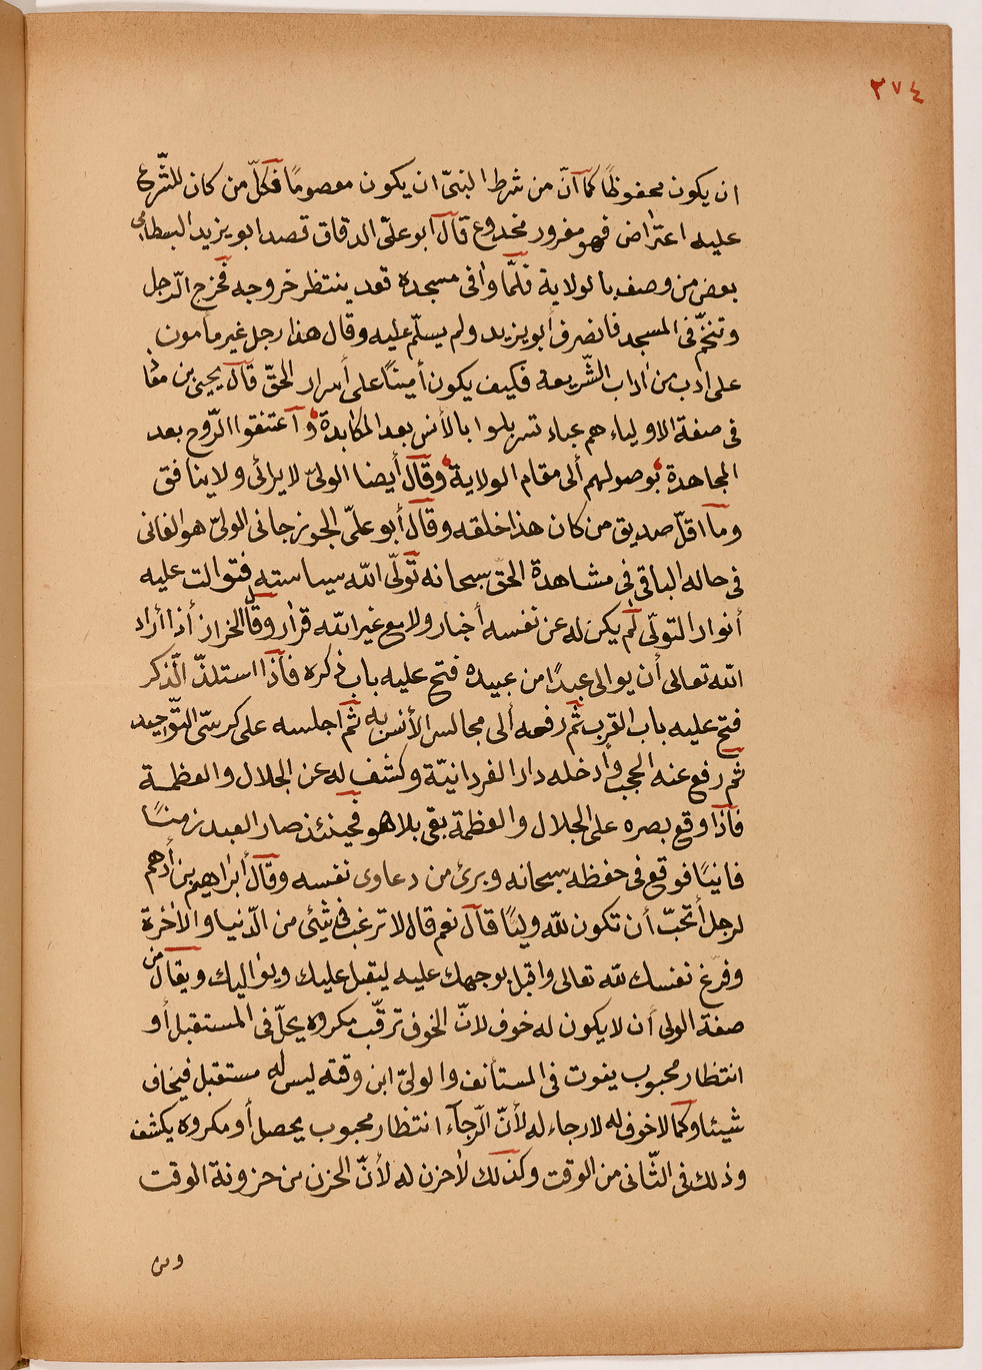 ٢٧٤
ان يكون محفوظًا كما أنّ من شرط النبىّ ان يكون معصومًا فكلّ من كان للشّرع
عليه اعتراض فهو مغرور مخدوع قال ابو علىّ الدقاق قصد ابو يزيد البسطامى
بعض من وصف بالولاية فلمّا وافى مسجده قعد ينتظر خروجه فخرج الرّجل
وتنخّم فى المسجد فانصرف أبو يزيد ولم يسلّم عليه وقال هذا رجل غير مأمون
على ادب من اداب الشّريعة فكيف يكون أمينًا على أسرار الحقّ قال يحيى بن معاذ
فى صفة الاولياء هم عباد تسربلوا بالأنس بعد المكابدة و اعتنقوا الرّوح بعد
المجاهدة بوصولهم ألى مقام الولاية وقال أيضا الولىّ لا يرائى ولا ينافق
وما اقلّ صديق من كان هذا خلقه وقال أبو علىّ الجوزجانى الولىّ هو الفانى
فى حاله الباقى فى مشاهدة الحقّ سبحانه تولّى اللّه سياسته فتوالت عليه
أنوار التولّى لم يكن له عن نفسه أخبار ولا مع غير اللّه قرار وقال الخراز أذا أراد
اللّه تعالى أن يوالى عبدًا من عبيده فتح عليه باب ذكره فأذا استلذّ الّذكر
فتح عليه باب القرب ثم رفعه ألى مجالس الأنس به ثم اجلسه على كرسّى التّوحيد
ثم رفع عنه الحجب وأدخله دار الفردانيّة وكشف له عن الجلال والعظمة
فأذا وقع بصره على الجلال والعظمة بقى بلا هو فحينئذ صار العبد زمنًا
فانيًا فوقع فى حفظه سبحانه وبرئ من دعاوى نفسه وقال أبراهيم بن أدهم
لرجل أتحبّ أن تكون للّه وليًا قال نعم قال لا ترغب فى شئى من الدّنيا والأخرة
وفرّغ نفسك للّه تعالى واقبل بوجهك عليه ليقبل عليك ويواليك ويقال من
صفة الولى أن لا يكون له خوف لانّ الخوف ترقّب مكروه يحلّ فى المستقبل أو
انتظار محبوب يفوت فى المستأنف والولىّ ابن وقته ليس له مستقبل فيخاف
شيئا وكما لا خوف له لا رجاء له لأنّ الرّجآء انتظار محبوب يحصل أو مكروه يكشف
وذلك فى الثّانى من الوقت وكذلك لا حزن له لأنّ الحزن من حزونة الوقت
ومن